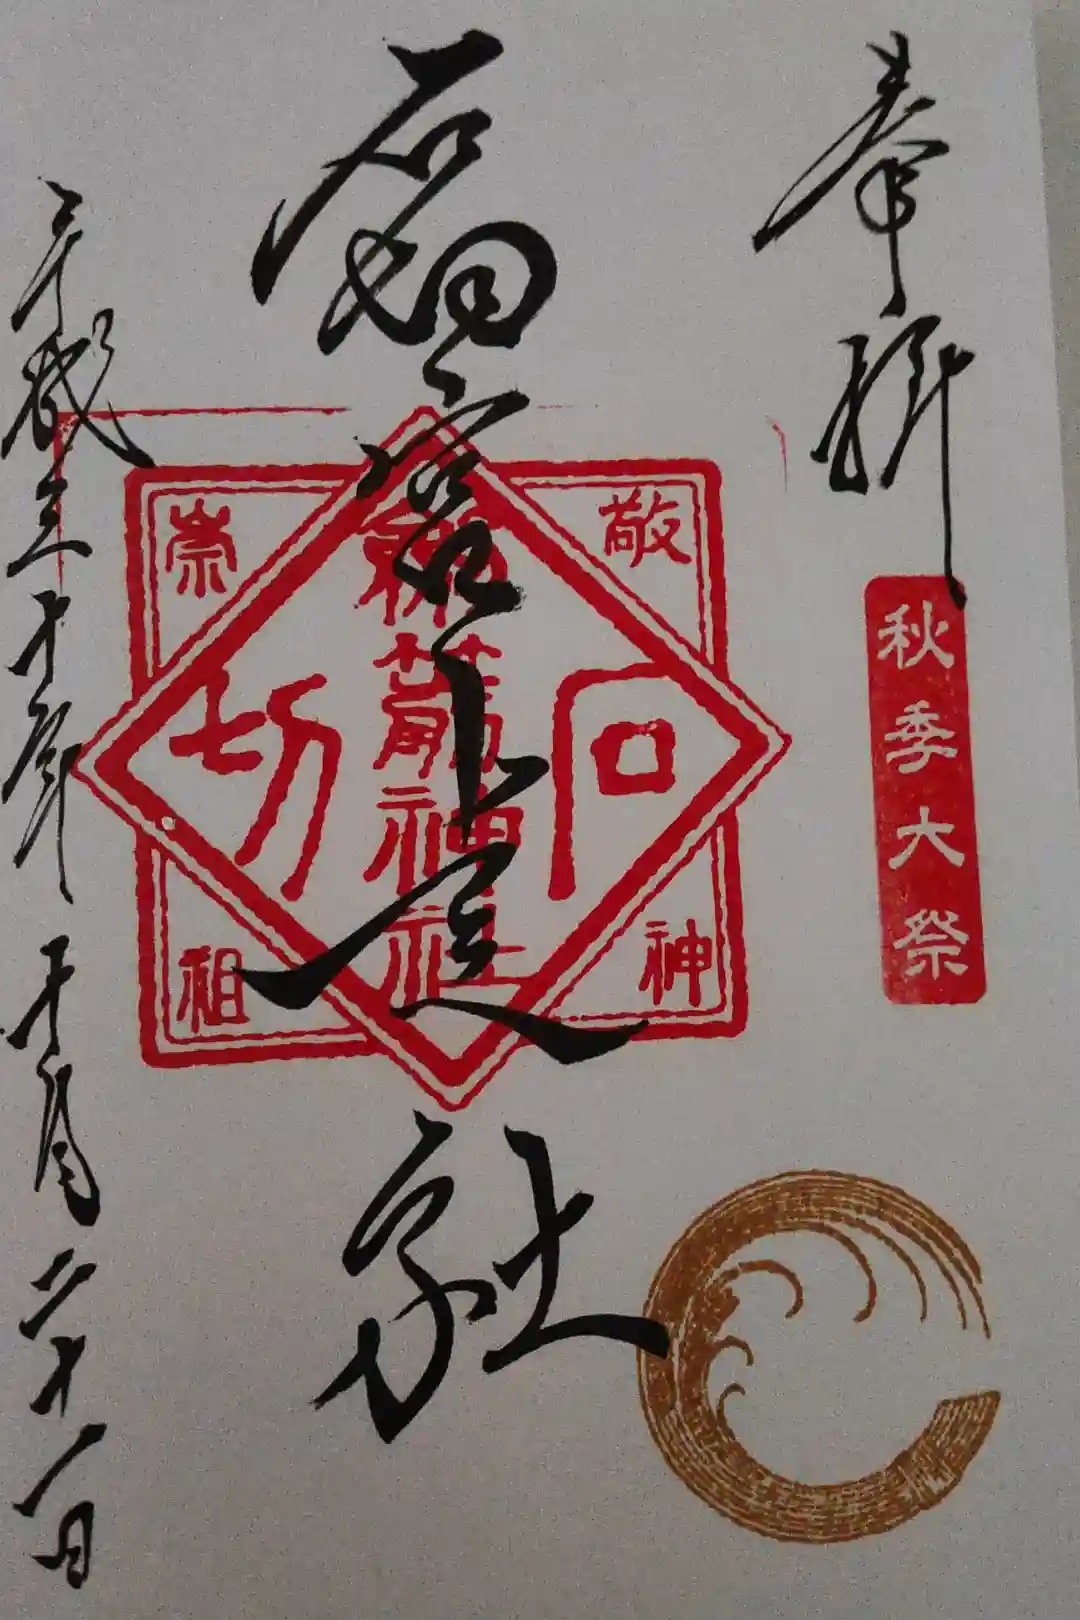 奉拝
秋季大祭
石切宮上之社
敬神
崇祖
石切
劔箭神社
平成三十年十月二十一日